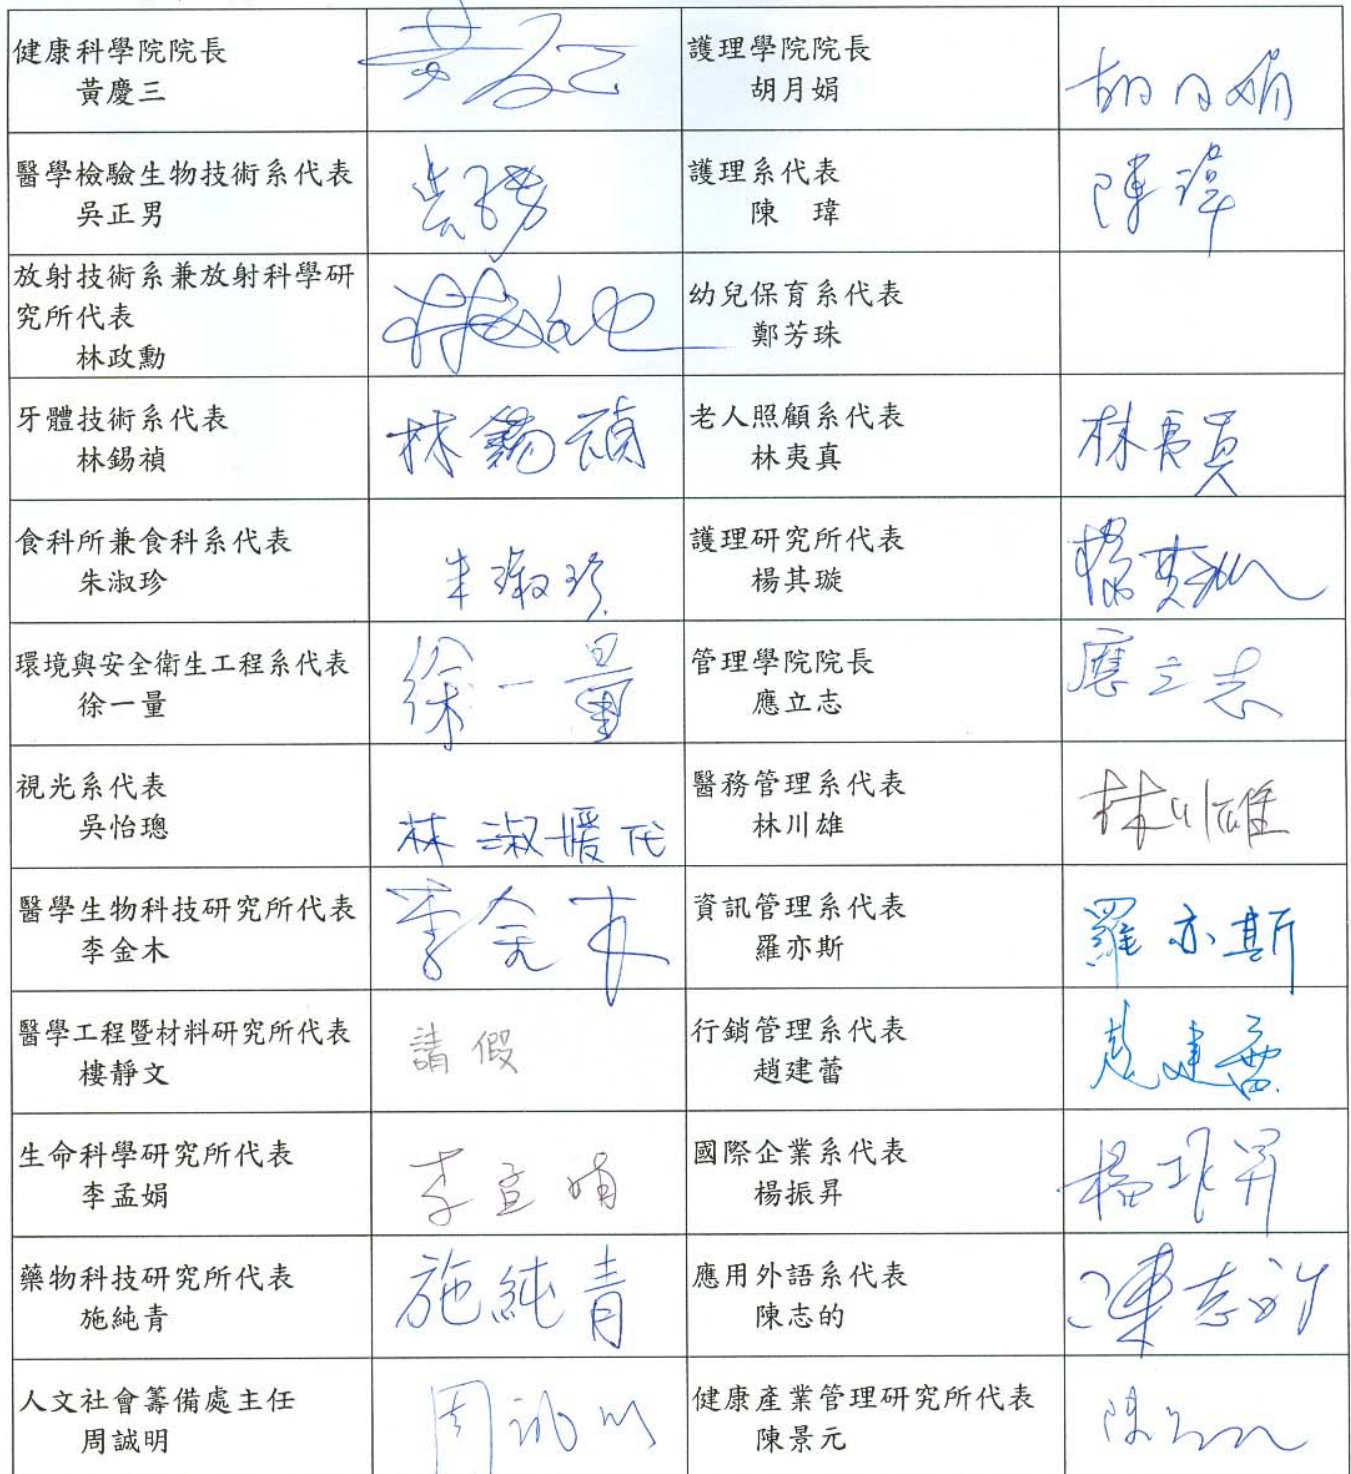 健康科學院院長
黃慶三
護理學院院長
胡月娟
胡月娟
醫學檢驗生物技術系代表
吳正男
護理系代表
陳 瑋
陳瑋
放射技術系兼放射科學研
究所代表
林政勳
幼兒保育系代表
鄭芳珠
牙體技術系代表
林錫禎
林錫禎
老人照顧系代表
林夷真
林夷真
食科所兼食科系代表
朱淑珍
朱淑珍
護理研究所代表
楊其璇
楊其璇
環境與安全衛生工程系代表
徐一量
徐一量
管理學院院長
應立志
應立志
視光系代表
吳怡璁
林淑媛代
醫務管理系代表
林川雄
林川雄
醫學生物科技研究所代表
李金木
李金木
資訊管理系代表
羅亦斯
羅亦斯
醫學工程暨材料研究所代表
樓靜文
請假
行銷管理系代表
趙建蕾
趙建蕾
生命科學研究所代表
李孟娟
李孟娟
國際企業系代表
楊振昇
楊振昇
藥物科技研究所代表
施純青
施純青
應用外語系代表
陳志的
陳志的
人文社會籌備處主任
周誠明
周誠明
健康產業管理研究所代表
陳景元